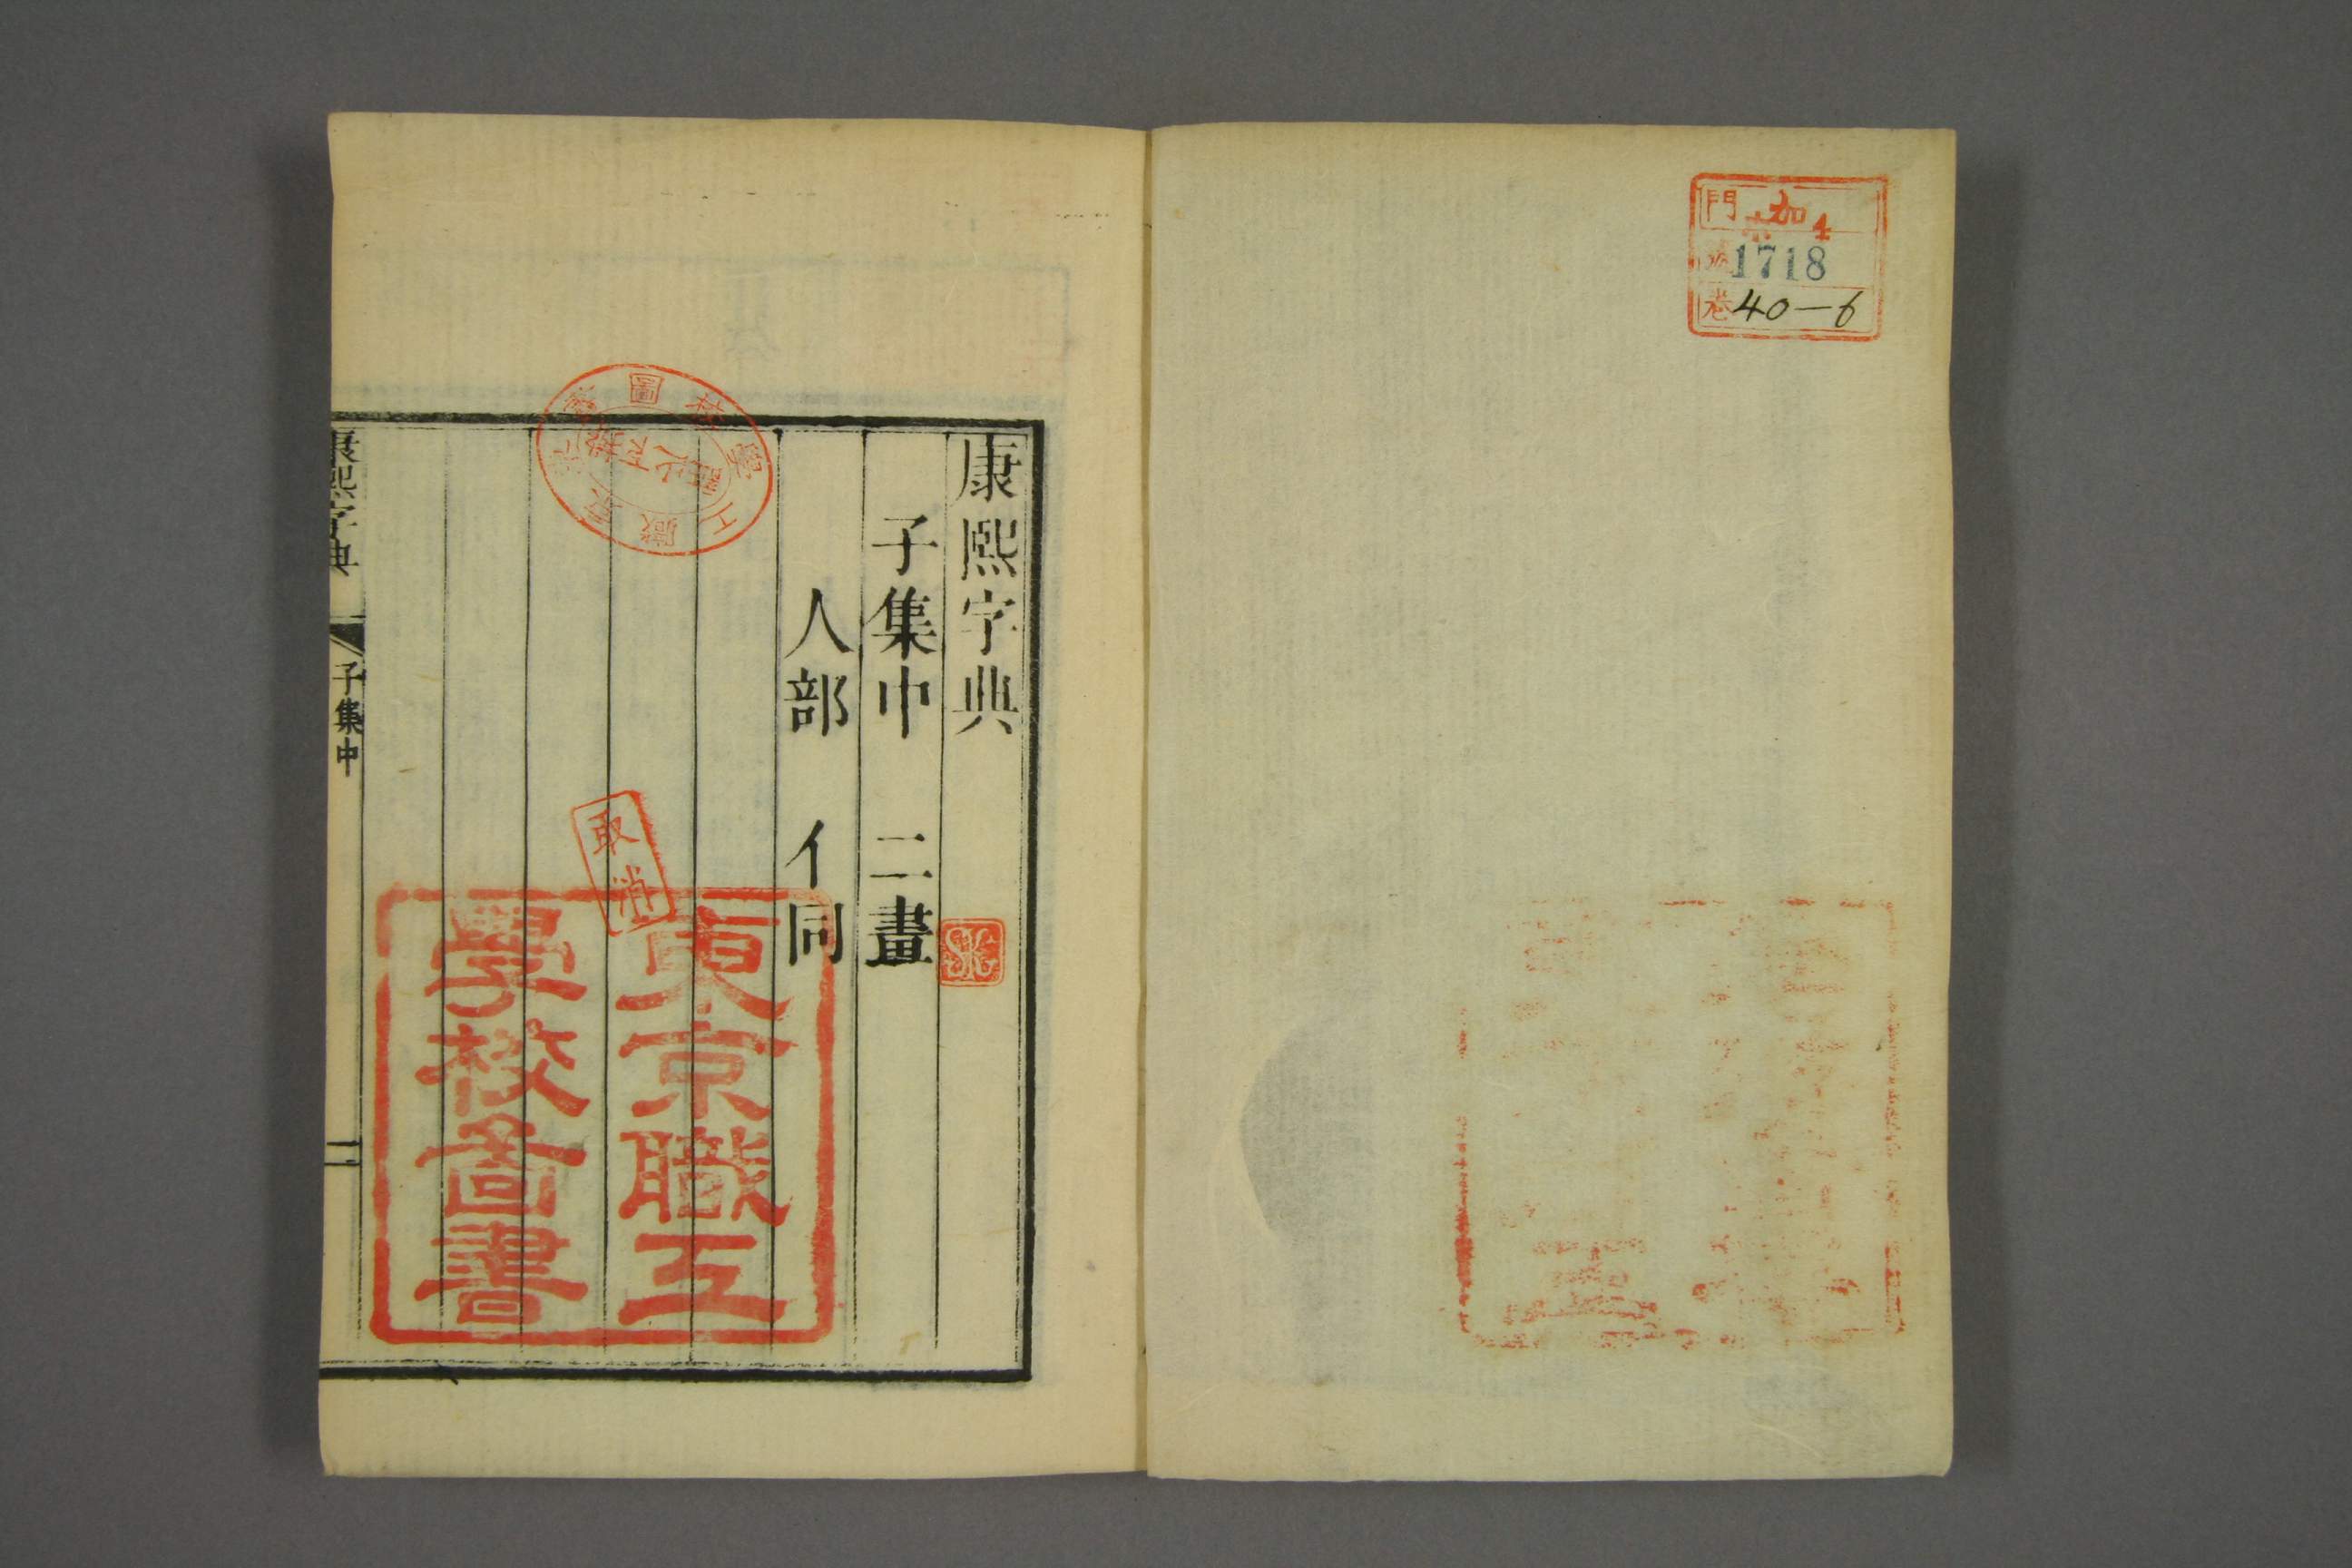 門 加 4
1718
巻 40-6
康熙字典
子集中 二畫
人部 亻同
取消
東京職工
學校圖書
康熙字典 子集中 一